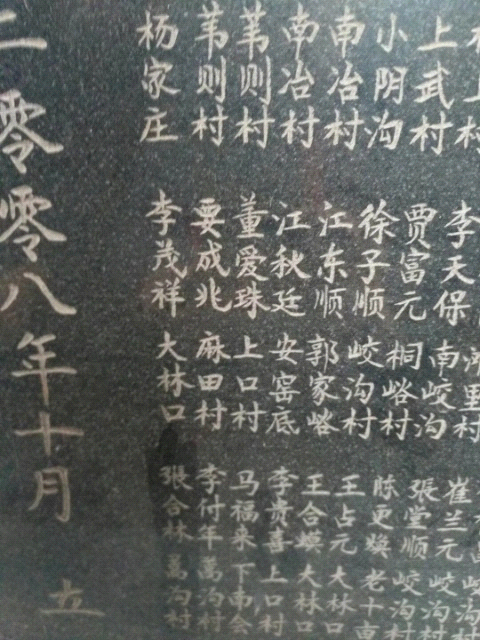 李天保
上武村 贾富元 南峧沟 崔兰元 峧沟村
小阴沟 徐子顺 桐峪村 張堂顺 峧沟村
南冶村 江东顺 峧沟村 陈更焕 老十亩
南冶村 江秋廷 郭家峪 王占元 大林口
苇则村 董爱珠 安窑底 王合 大林口
苇则村 要成兆 上口村 李贵喜 上口村
杨家庄 李茂祥 麻田村 马福来 下南会
大林口 李付年 萬沟村
張合林 萬沟村
二零零八年十月 立